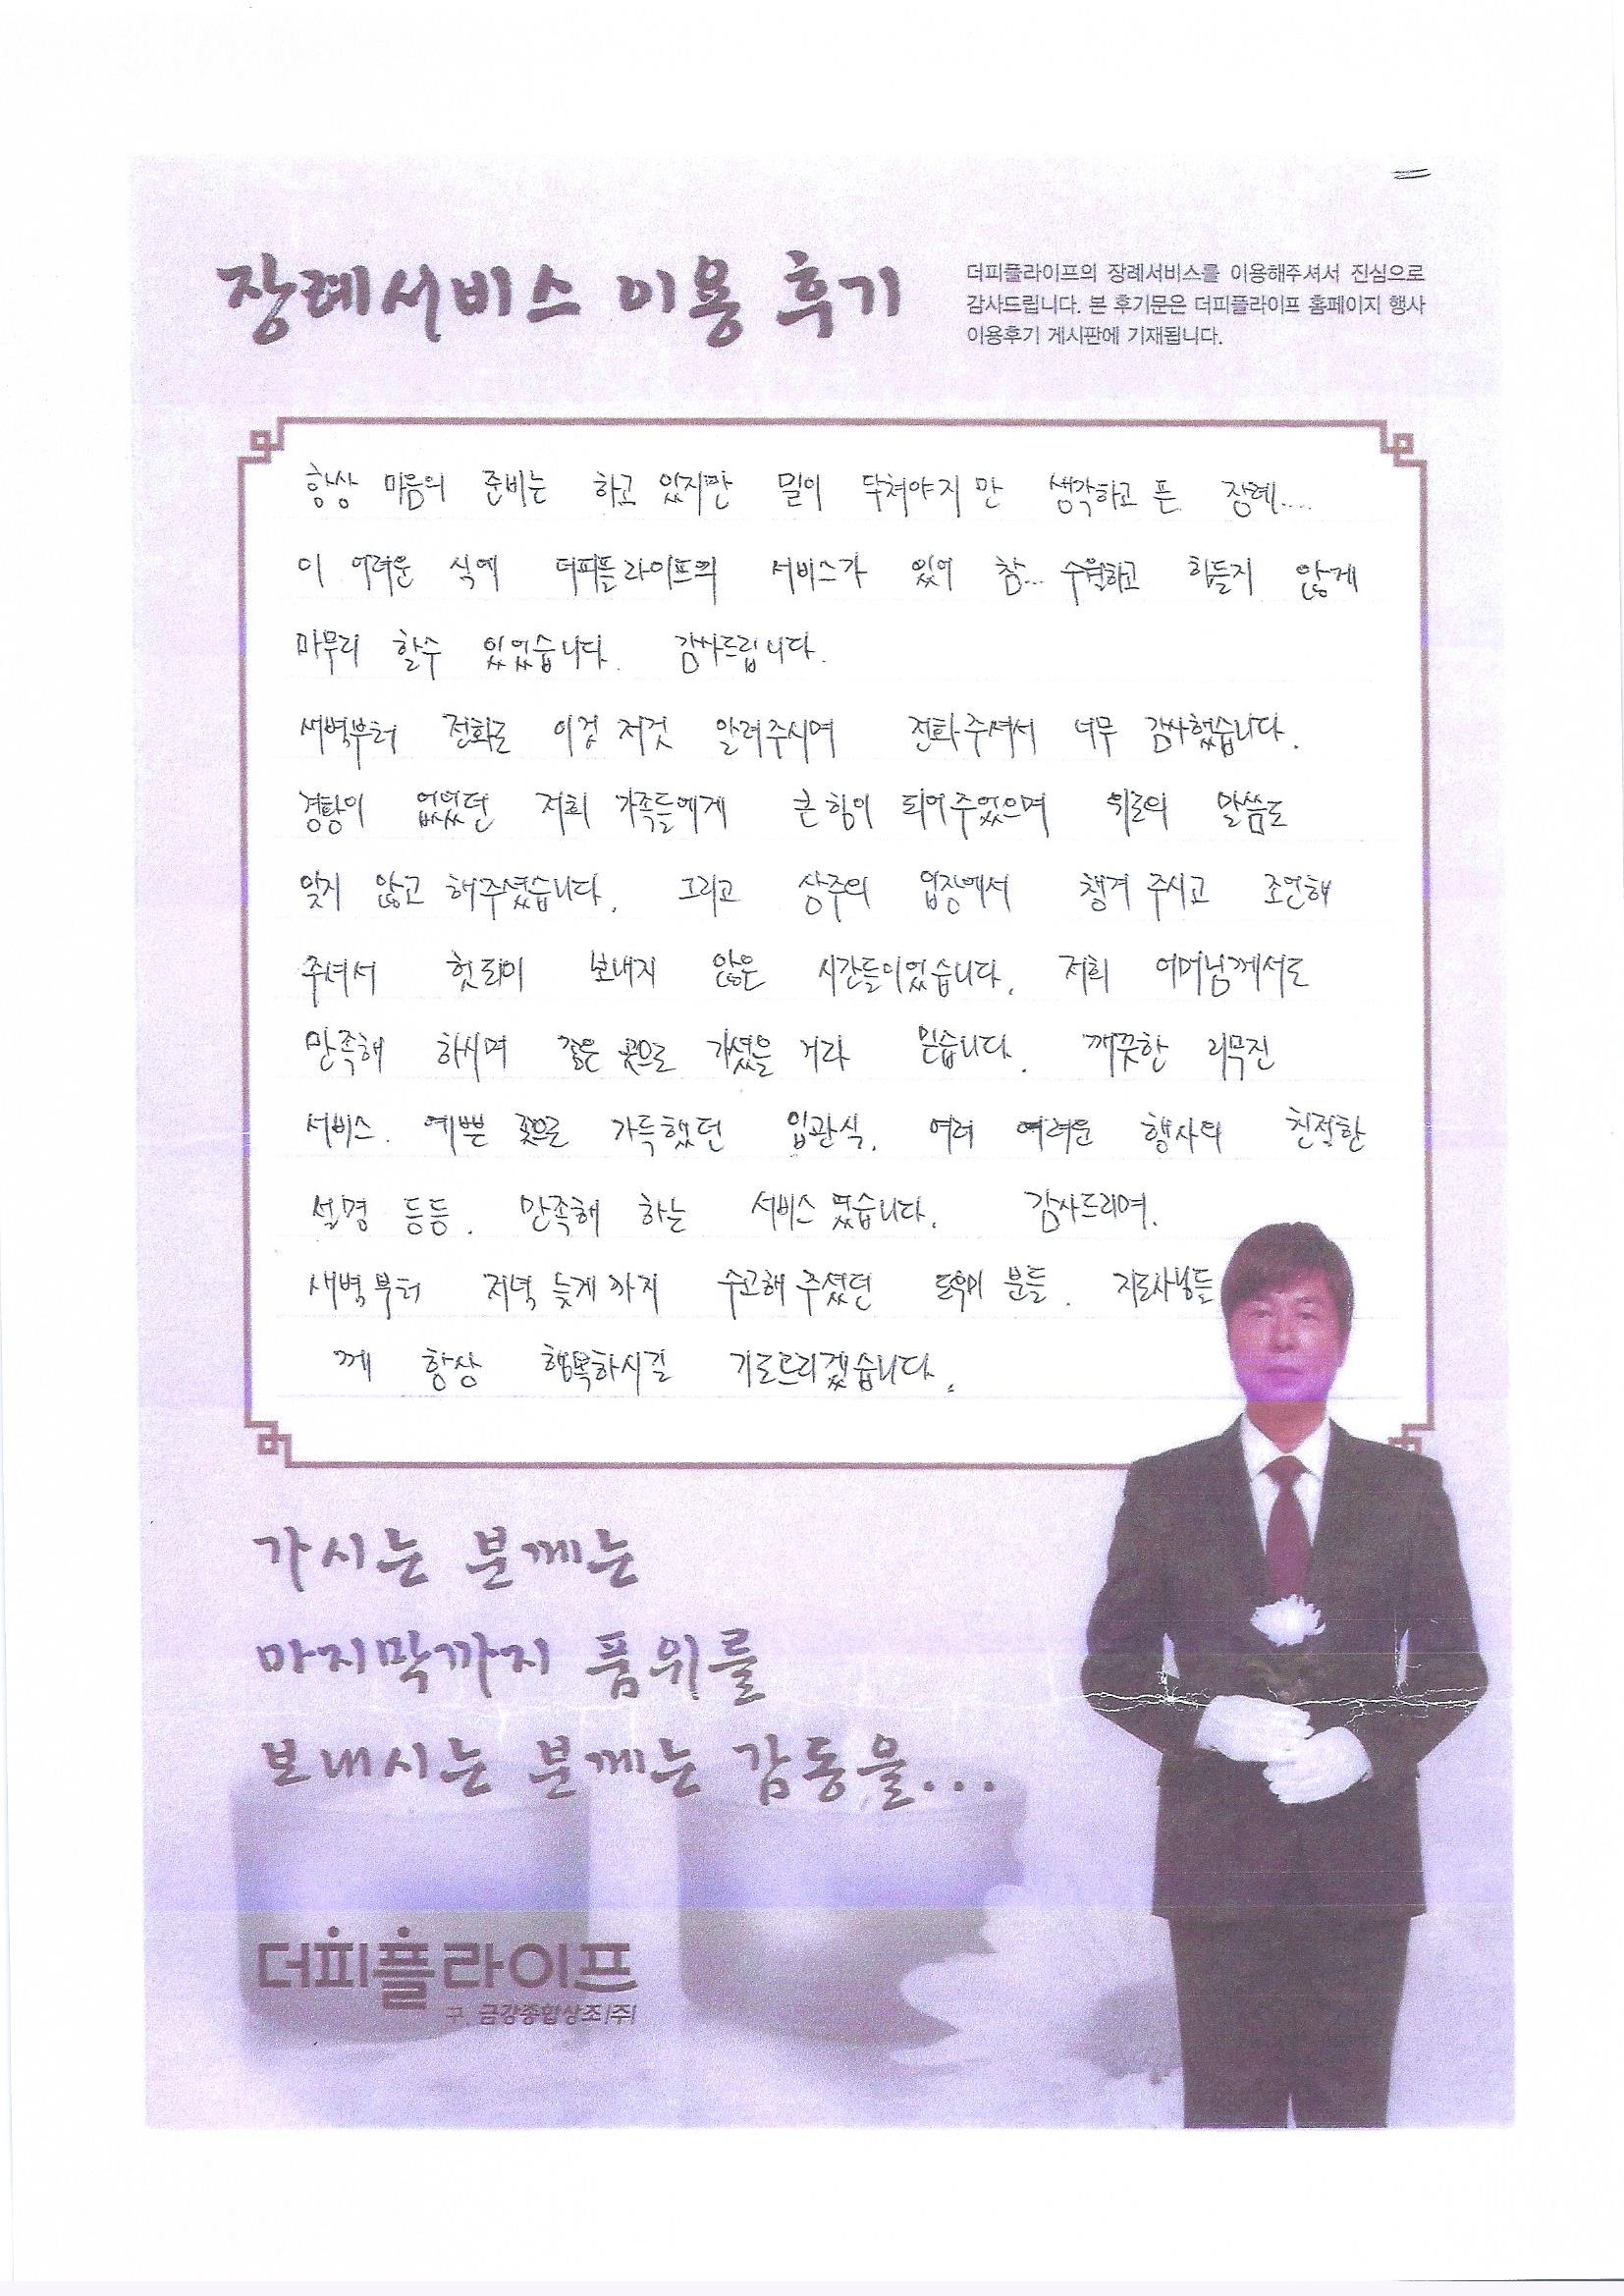 장례서비스 이용 후기
더피플라이프의 장례서비스를 이용해주셔서 진심으로
감사드립니다. 본 후기문은 더피플라이프 홈페이지 행사
이용후기 게시판에 기재됩니다.
항상 마음의 준비는 하고 있지만 일이 닥쳐야지 만 생각하고 픈 장례....
이 어려운 식에 더피플라이프의 서비스가 있어 참... 수월하고 힘들지 않게
마무리 할수 있었습니다. 감사드립니다.
새벽부터 전화로 이것 저것 알려주시며 전화주셔서 너무 감사했습니다.
경황이 없었던 저희 가족들에게 큰힘이 되어주었으며 위로의 말씀도
잊지 않고 해주셨습니다. 그리고 상주의 입장에서 챙겨 주시고 조언해
주셔서 헛되이 보내지 않은 시간들이었습니다. 저희 어머님께서도
만족해 하시며 좋은 곳으로 가셨을 거라 믿습니다. 깨끗한 리무진
서비스. 예쁜 꽃으로 가득했던 입관식. 여러 어려운 행사의 친절한
설명 등등. 만족해 하는 서비스 였습니다. 감사드리며.
새벽부터 저녁 늦게 까지 수고해 주셨던 도우미 분들. 지도사님들
께 항상 행복하시길 기도드리겠습니다.
가시는 분께는
마지막까지 품위를
보내시는 분께는 감동을...
더피플라이프
구. 금강종합상조(주)